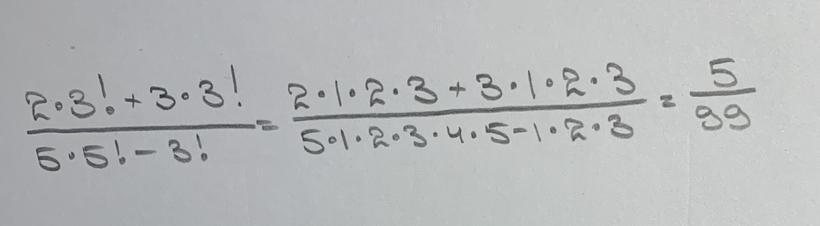 (2·3!+3·3!)/(5·5!-3!) = (2·1·2·3+3·1·2·3)/(5·1·2·3·4·5-1·2·3) = 5/99